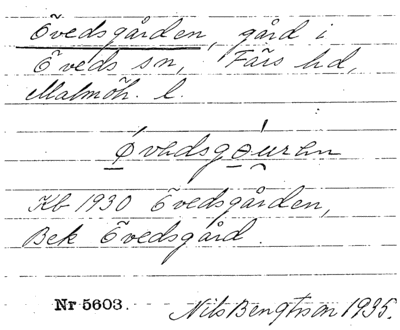 Övedsgården, gård i
Öveds sn, Färs hd,
Malmöh. l.
ǿvedsgǝ́uren
Kb 1930 Övedsgården,
Bek Övedsgård.
Nr 5603. Nils Bengtson 1935.